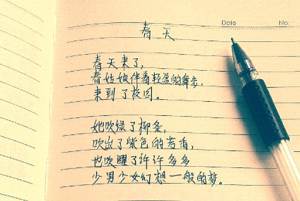 春天
Date No.
春天来了,
春姑娘伴着轻盈的舞步,
来到了校园。
她吹绿了柳条,
吹出了紫色的苦雨,
也吹醒了许许多多
少男少女幻想一般的梦。